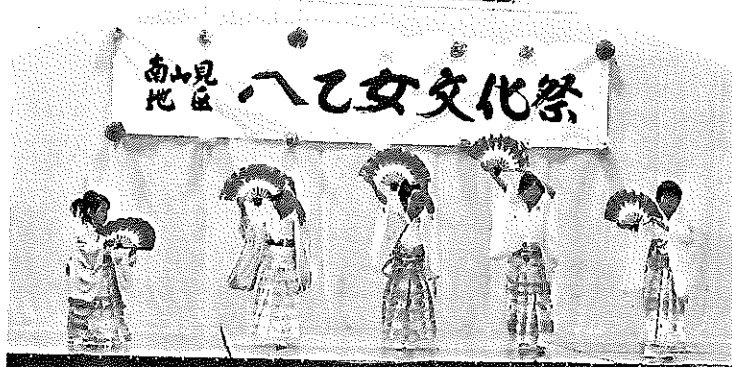 南山見
地区
八乙女文化祭